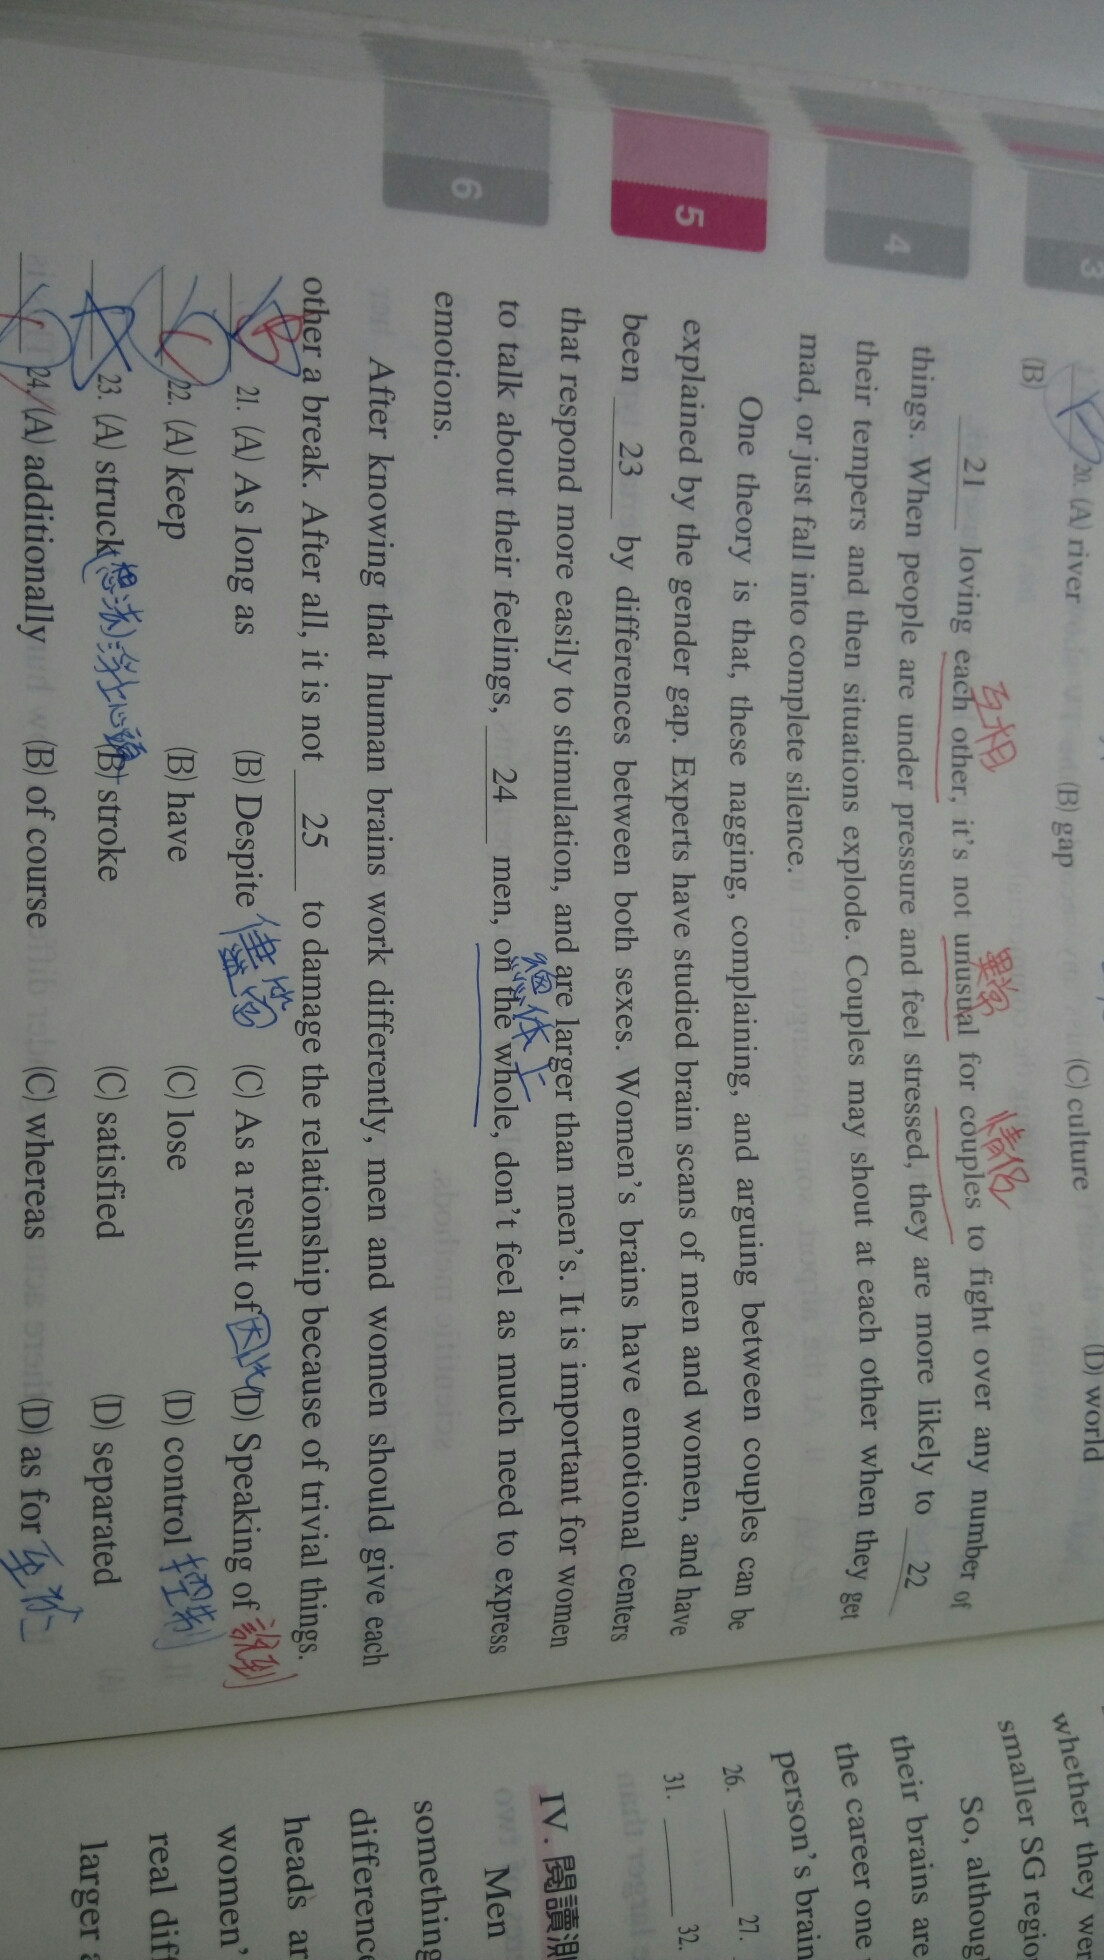 3
4
5
6
20. (A) river (B) gap (C) culture (D) world
(B)
互相 異常 情侶
21 loving each other, it's not unusual for couples to fight over any number of
things. When people are under pressure and feel stressed, they are more likely to 22
their tempers and then situations explode. Couples may shout at each other when they get
mad, or just fall into complete silence.
One theory is that, these nagging, complaining, and arguing between couples can be
explained by the gender gap. Experts have studied brain scans of men and women, and have
been 23 by differences between both sexes. Women's brains have emotional centers
that respond more easily to stimulation, and are larger than men's. It is important for women
總體上
to talk about their feelings, 24 men, on the whole, don't feel as much need to express
emotions.
After knowing that human brains work differently, men and women should give each
other a break. After all, it is not 25 to damage the relationship because of trivial things.
B 21. (A) As long as (B) Despite 儘管 (C) As a result of (D) Speaking of 說到
C 22. (A) keep (B) have (C) lose (D) control 控制
A 23. (A) struck (B) stroke (C) satisfied (D) separated
24. (A) additionally (B) of course (C) whereas (D) as for 至於
whether they wer
smaller SG regio
So, althoug
their brains are
the career one
person's brain
26. 27.
31. 32.
IV. 閱讀測
Men
something
differenc
heads ar
women'
real dif
larger a